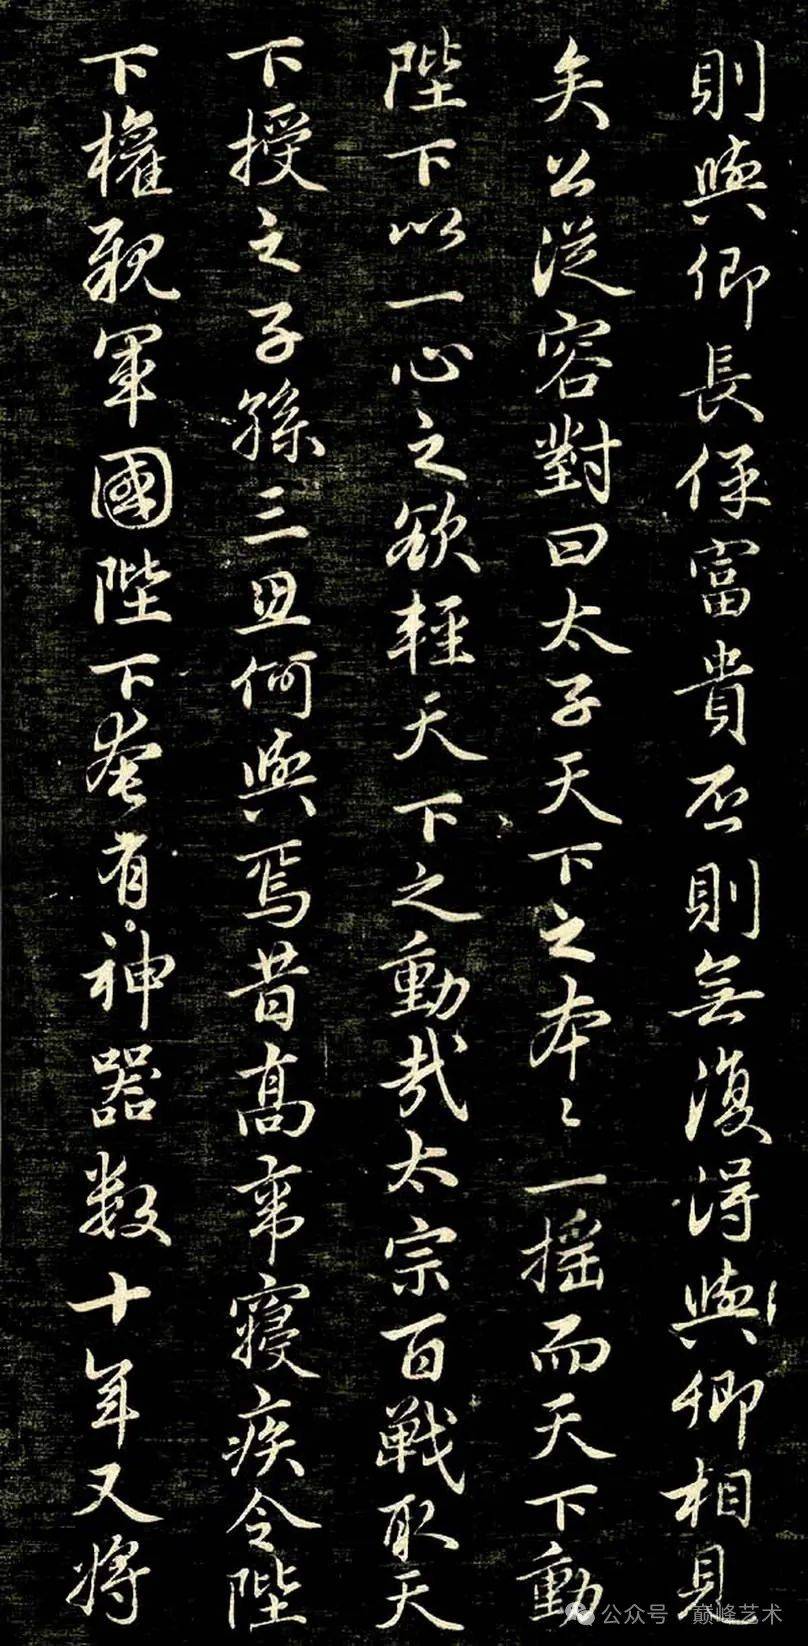 則與卿長保富貴否則無復得與卿相見
矣公從容對曰太子天下之本〻一揺而天下動
陛下以一心之欲輕天下之動哉太宗百戰取天
下授之子孫三思何與焉昔高宗寢疾令陛
下權親軍國陛下奄有神器数十年又将
公众号 · 巅峰艺术